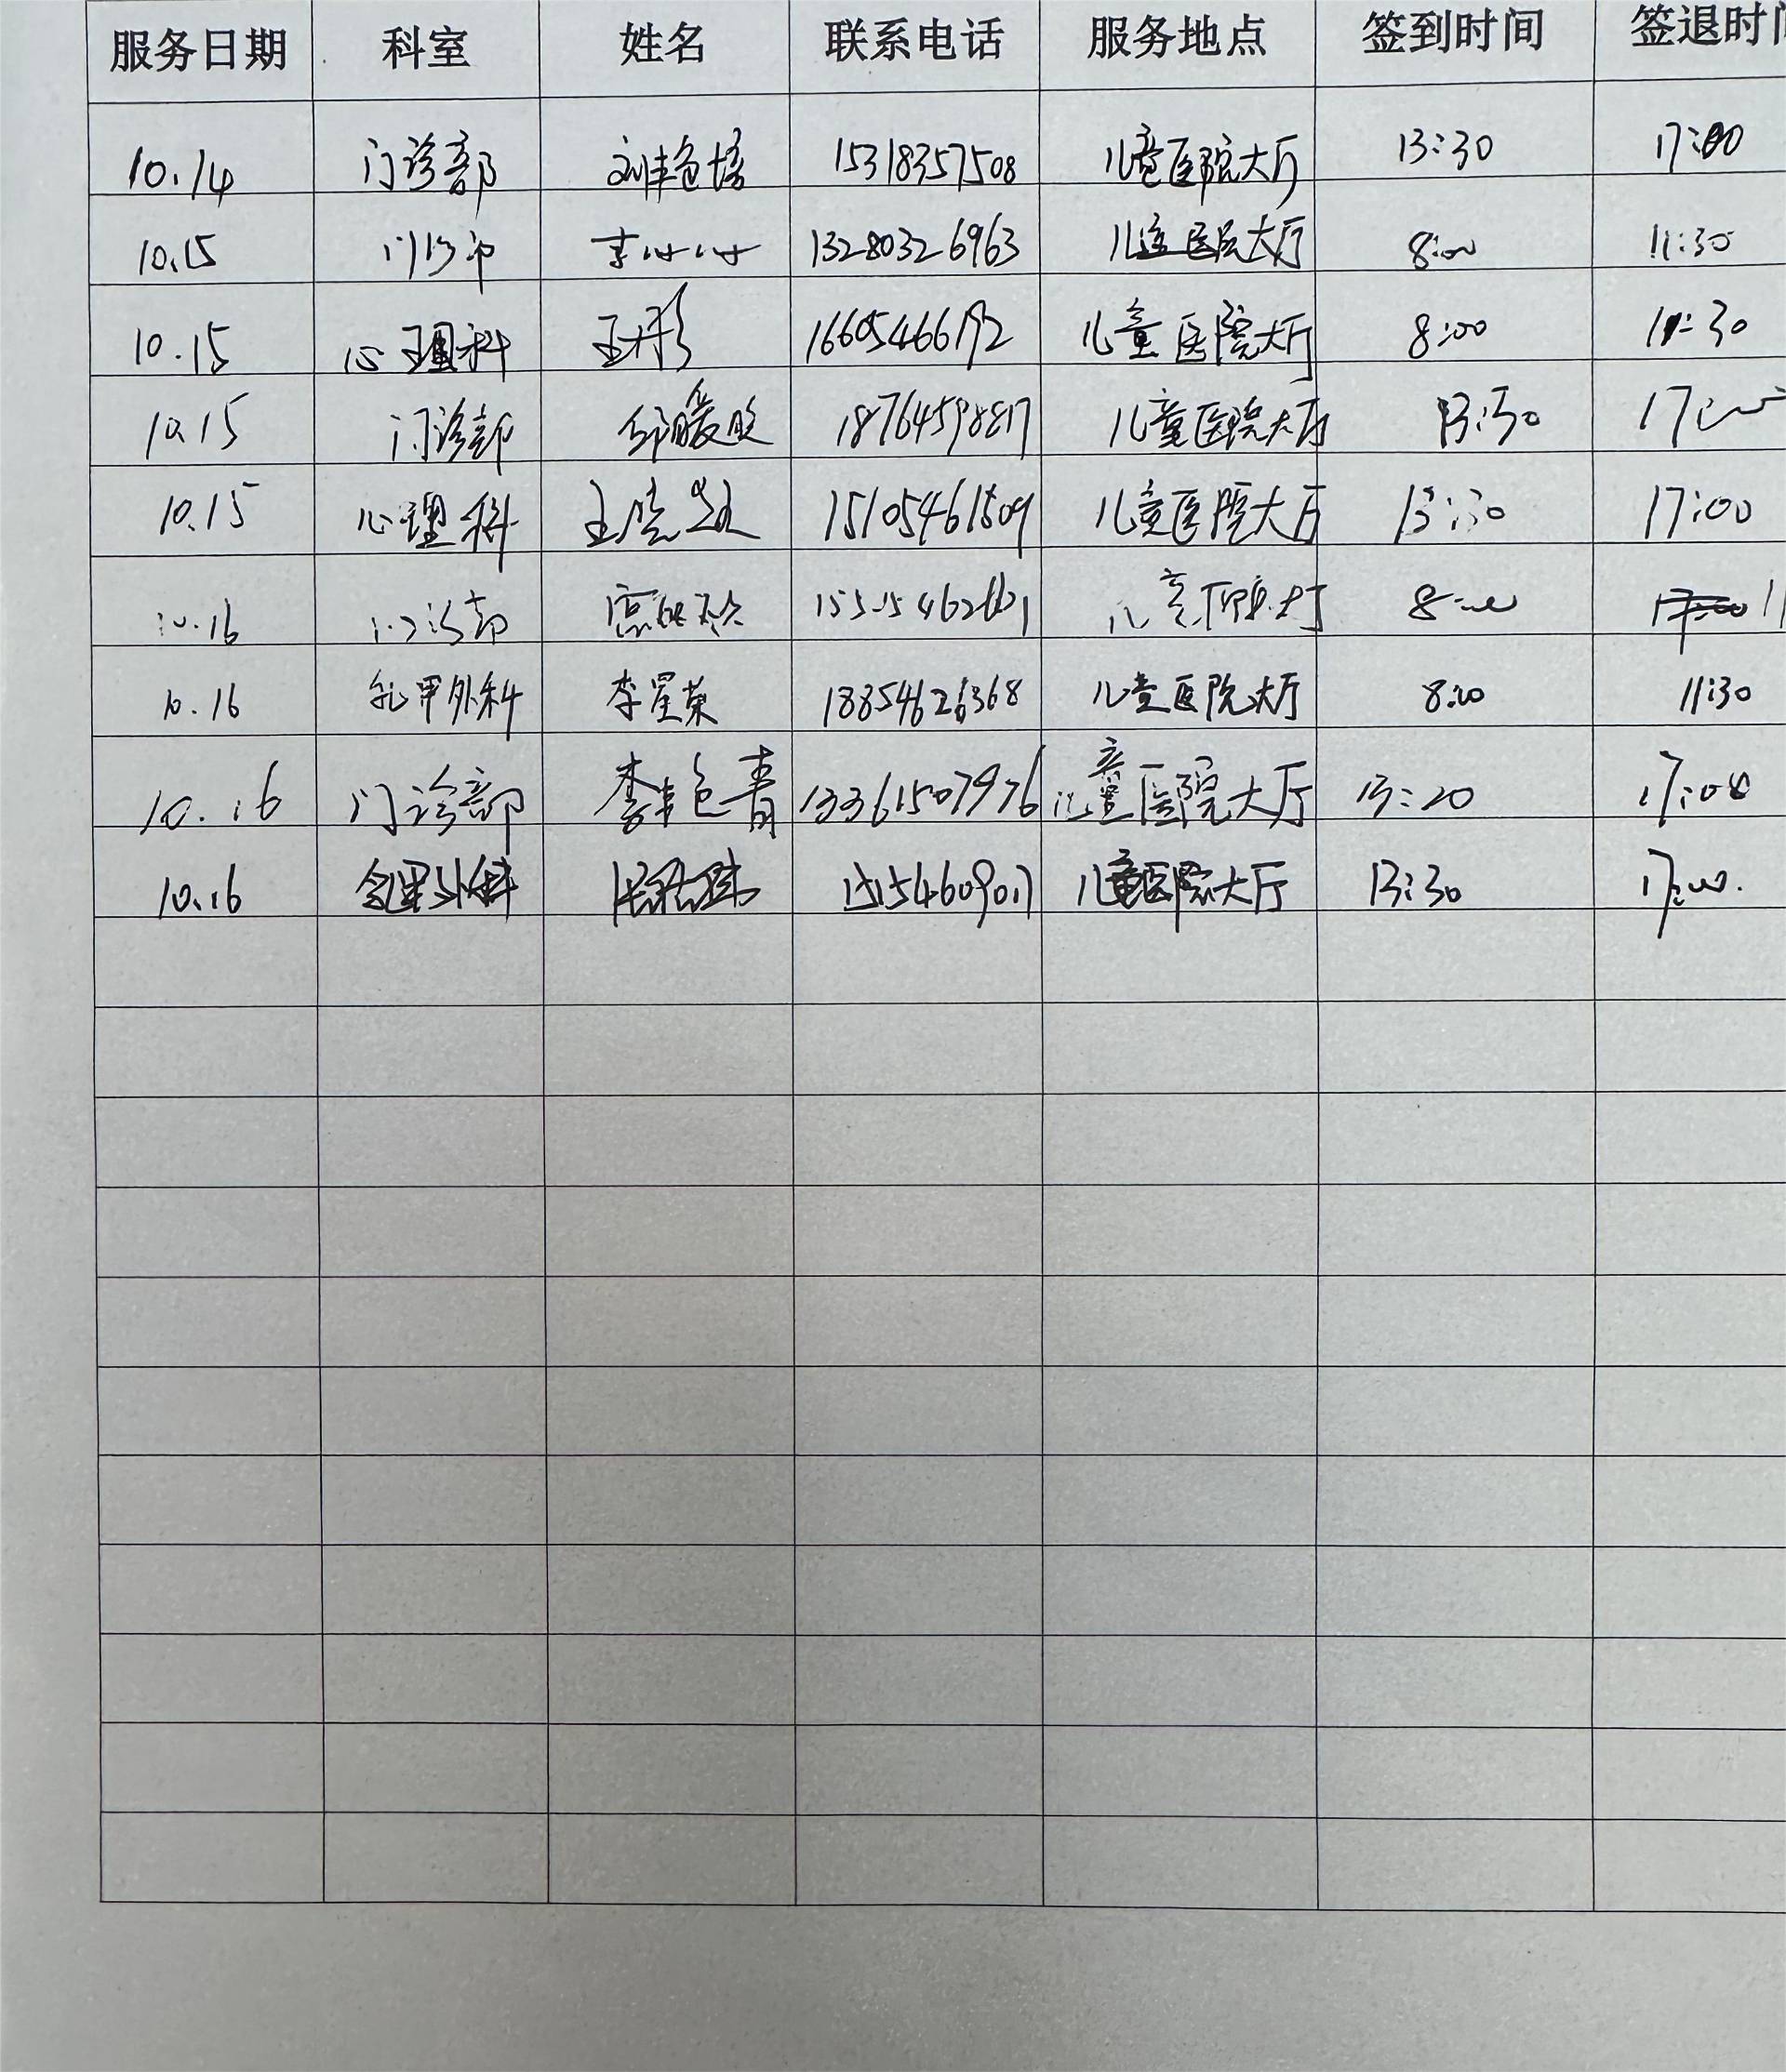 服务日期 科室 姓名 联系电话 服务地点 签到时间 签退时
10.14 门诊部 刘艳培 15318357508 儿童医院大厅 13:30 17:00
10.15 门诊部 李 13280326963 儿童医院大厅 8:00 11:30
10.15 心理科 王彤 16605466192 儿童医院大厅 8:00 11:30
10.15 门诊部 邱暖 18764598817 儿童医院大厅 13:30 17:00
10.15 心理科 王 15105461509 儿童医院大厅 13:30 17:00
10.16 门诊部 儿童医院大厅 8:00
10.16 乳甲外科 李星荣 18854626368 儿童医院大厅 8:00 11:30
10.16 门诊部 李艳青 13361507976 儿童医院大厅 13:20 17:00
10.16 儿童医院大厅 13:30 17:00.